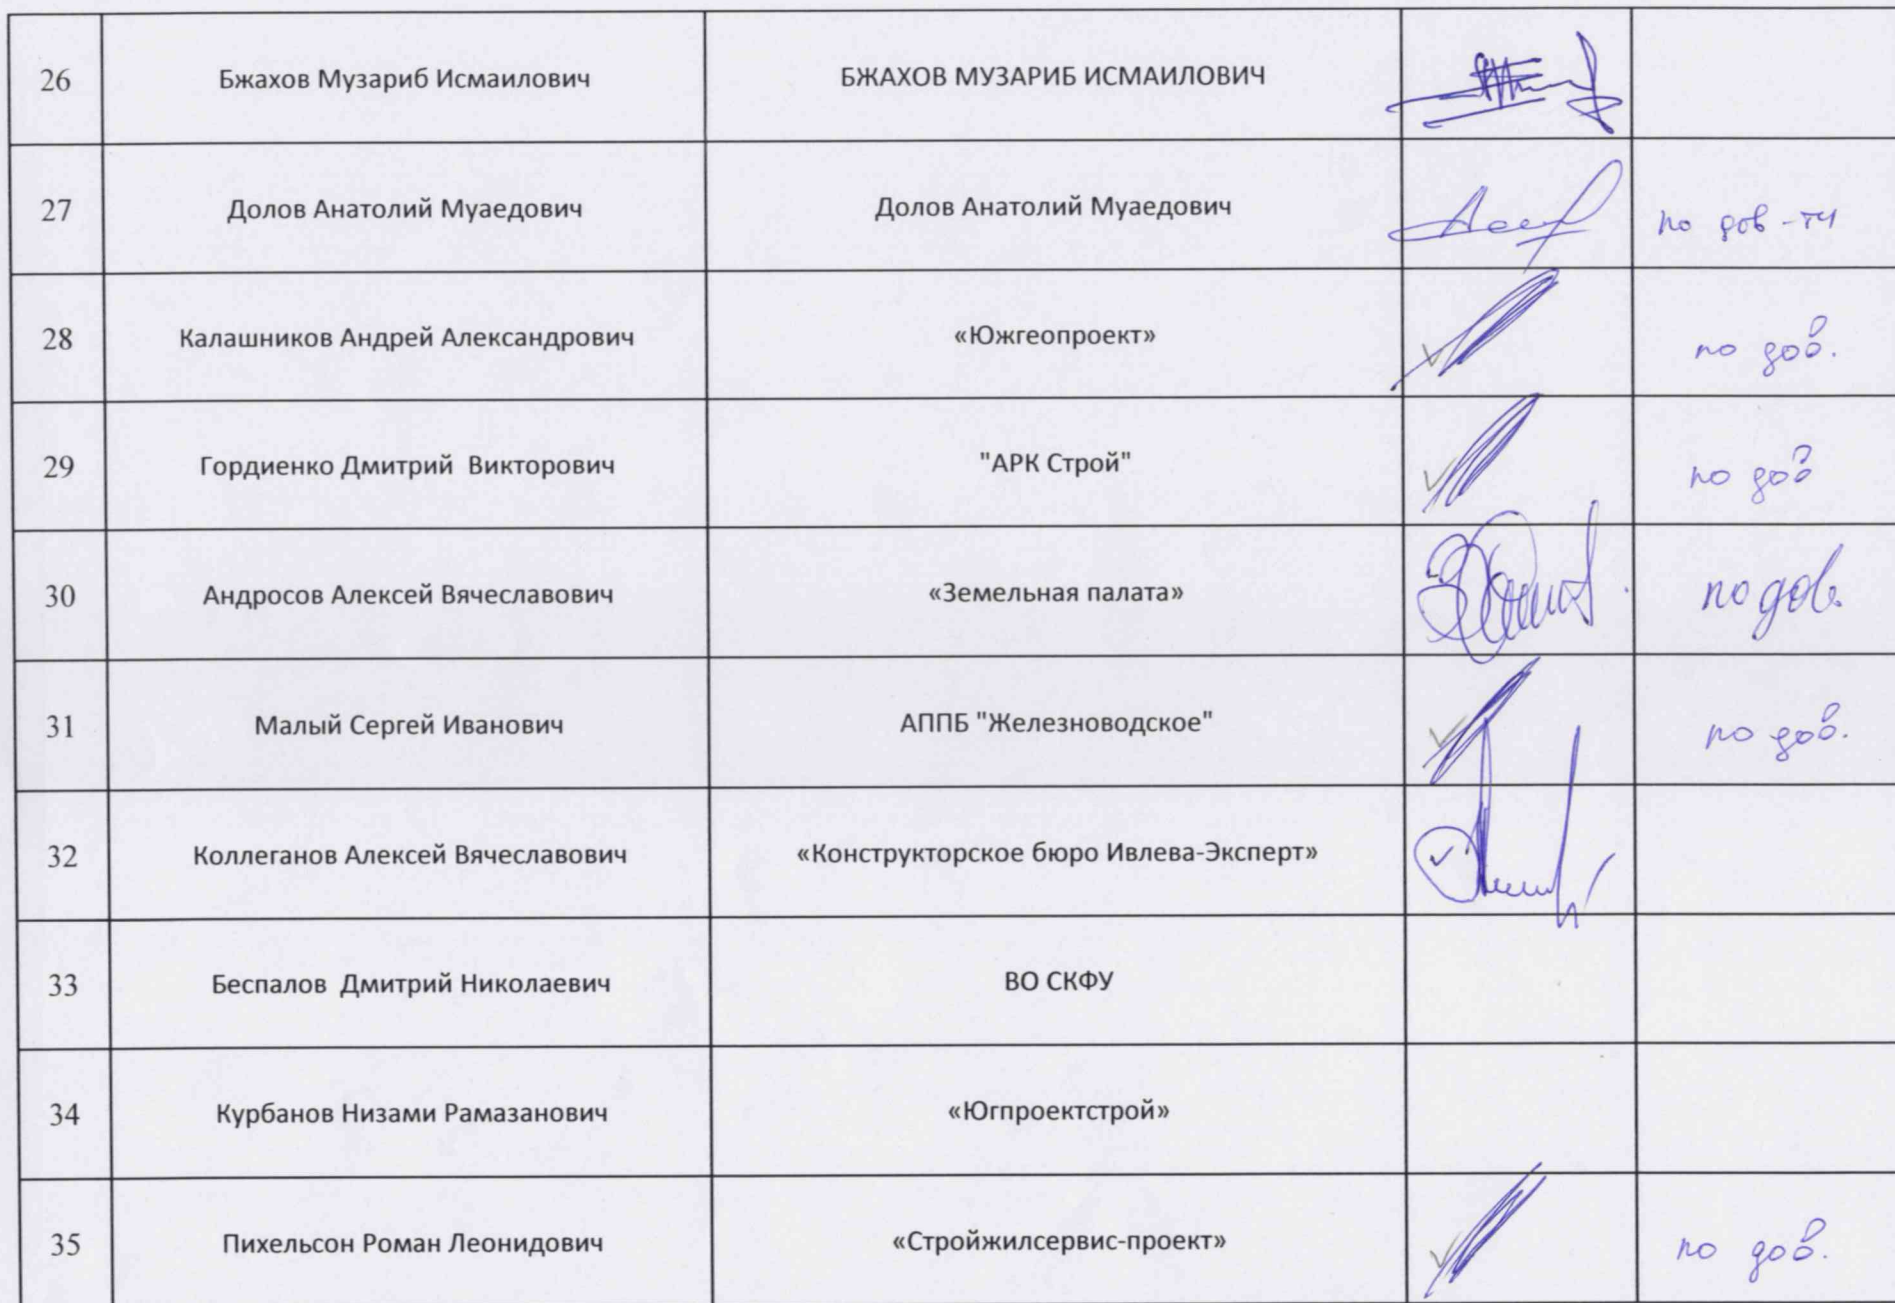 26 Бжахов Музариб Исмаилович БЖАХОВ МУЗАРИБ ИСМАИЛОВИЧ
27 Долов Анатолий Муаедович Долов Анатолий Муаедович по дов-ти
28 Калашников Андрей Александрович «Южгеопроект» по дов.
29 Гордиенко Дмитрий Викторович "АРК Строй" по дов
30 Андросов Алексей Вячеславович «Земельная палата» по дов.
31 Малый Сергей Иванович АППБ "Железноводское" по дов.
32 Коллеганов Алексей Вячеславович «Конструкторское бюро Ивлева-Эксперт»
33 Беспалов Дмитрий Николаевич ВО СКФУ
34 Курбанов Низами Рамазанович «Югпроектстрой»
35 Пихельсон Роман Леонидович «Стройжилсервис-проект» по дов.